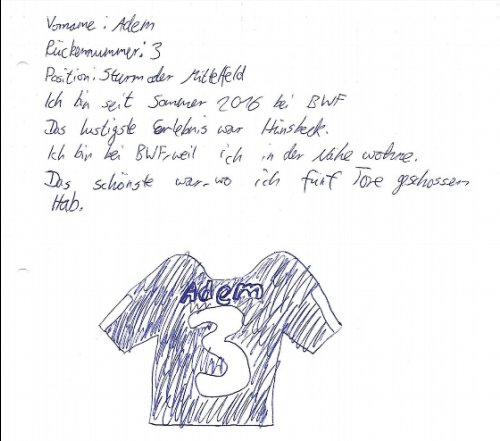 Vorname: Adem
Rückennummer: 3
Position: Sturm oder Mittelfeld
Ich bin seit Sommer 2016 bei BWF
Das lustigste Erlebnis war Hinsbeck.
Ich bin bei BWF, weil ich in der Nähe wohne.
Das schönste war, wo ich fünf Tore geschossen
Hab.
Adem
3